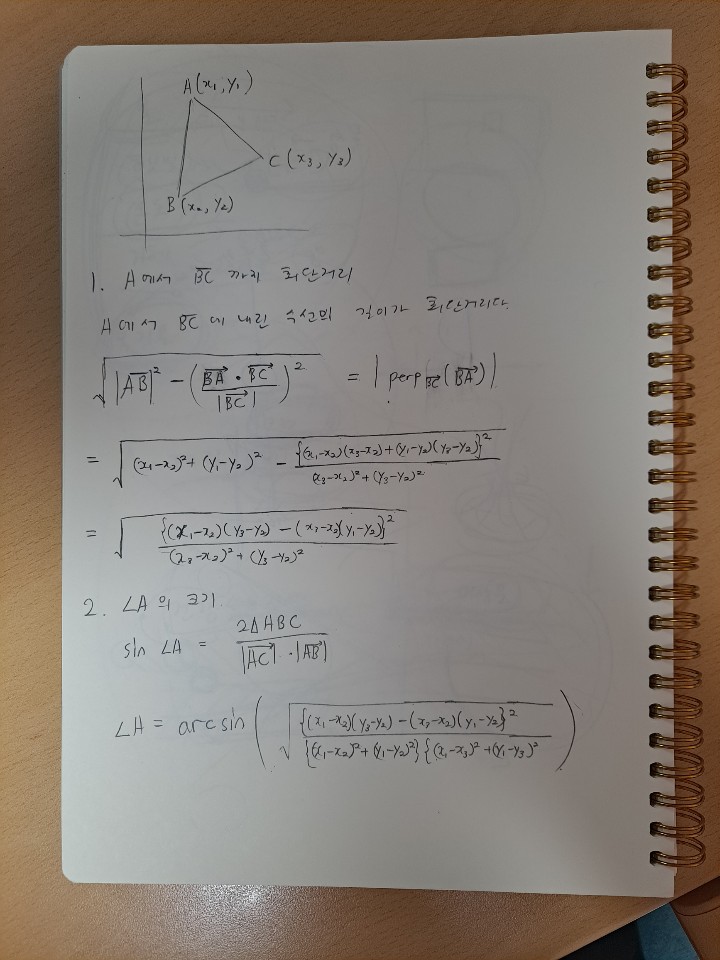 A(x₁, y₁)
C(x₃, y₃)
B(x₂, y₂)
1. A에서 B̅C̅ 까지 최단거리
A에서 B̅C̅ 에 내린 수선의 길이가 최단거리다.
√(|A̅B̅|² − ((BA→ · BC→)/|BC→|)²) = |perp_BC→(BA→)|
= √((x₁−x₂)² + (y₁−y₂)² − {(x₁−x₂)(x₃−x₂)+(y₁−y₂)(y₃−y₂)}²/((x₃−x₂)²+(y₃−y₂)²))
= √({(x₁−x₂)(y₃−y₂) − (x₃−x₂)(y₁−y₂)}²/((x₃−x₂)² + (y₃−y₂)²))
2. ∠A의 크기.
sin ∠A = 2△ABC/(|AC→| · |AB→|)
∠A = arcsin(√({(x₁−x₂)(y₃−y₂) − (x₃−x₂)(y₁−y₂)}²/({(x₁−x₂)²+(y₁−y₂)²}{(x₁−x₃)²+(y₁−y₃)²))